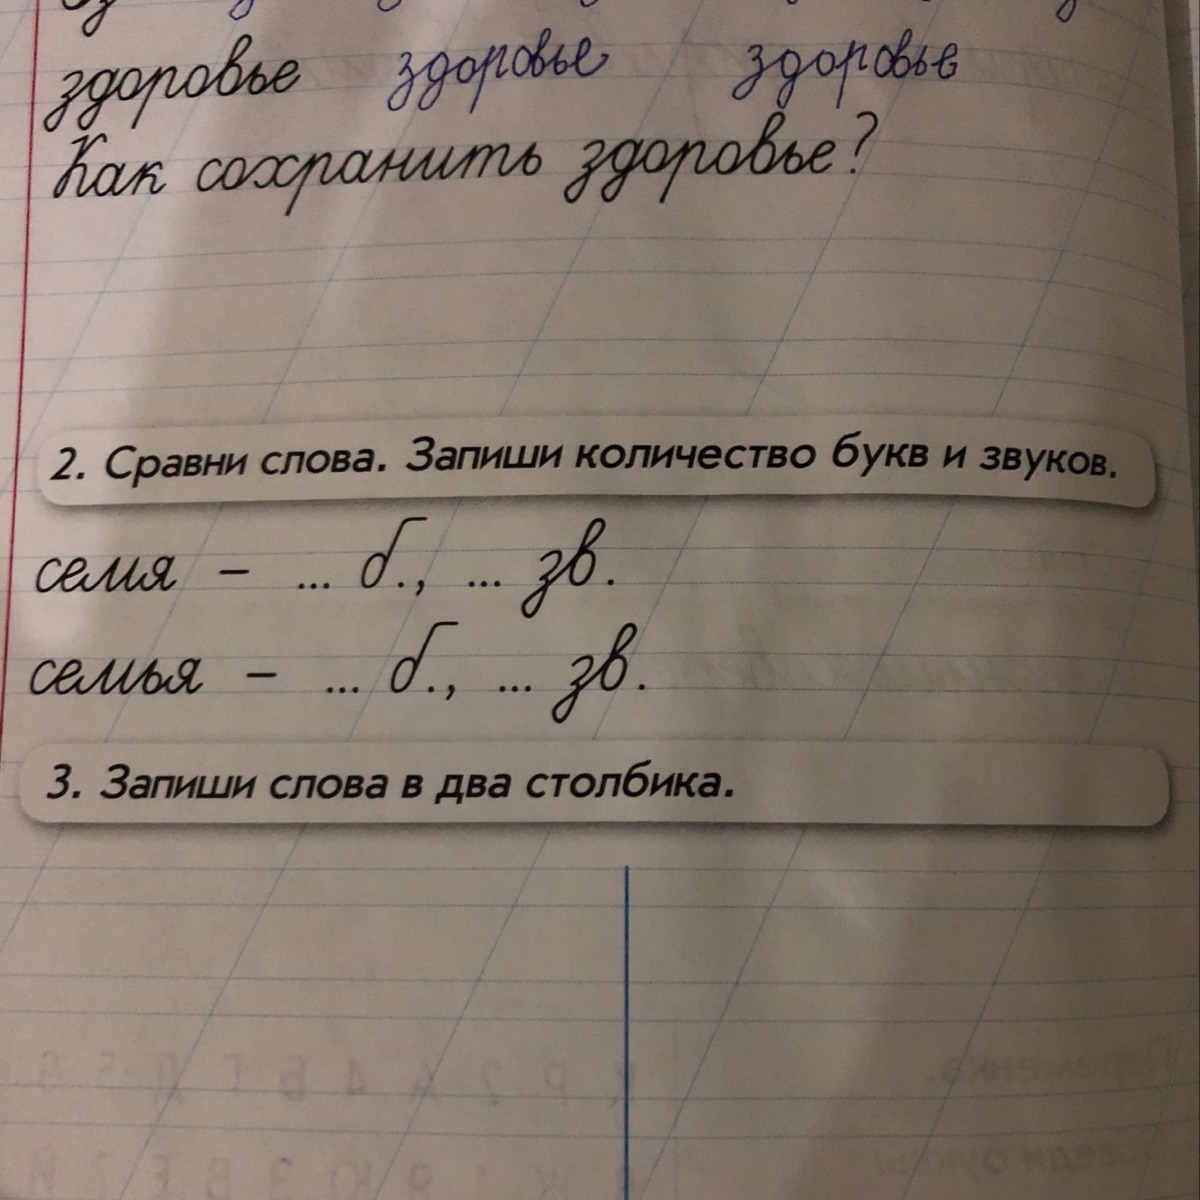 здоровье здоровье здоровье
Как сохранить здоровье?
2. Сравни слова. Запиши количество букв и звуков.
семя - ... б., ... зв.
семья - ... б., ... зв.
3. Запиши слова в два столбика.